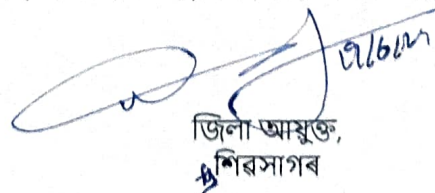 জিলা আয়ুক্ত,
শিৱসাগৰ